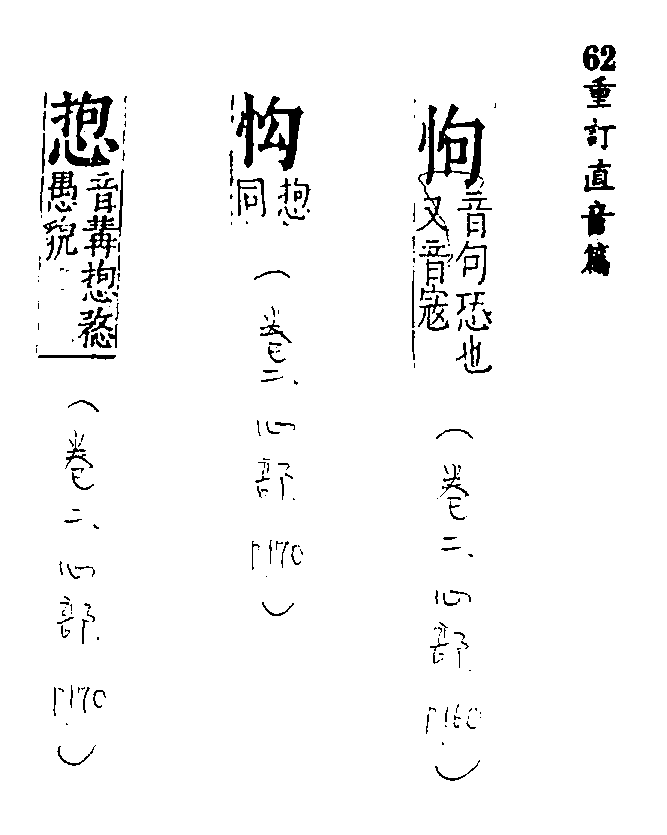 62重訂直音篇
怐
音句恐也
又音寇
(卷二、心部 P160)
同
(卷二、心部 P170)
音冓
愚貌
(卷二、心部 P170)